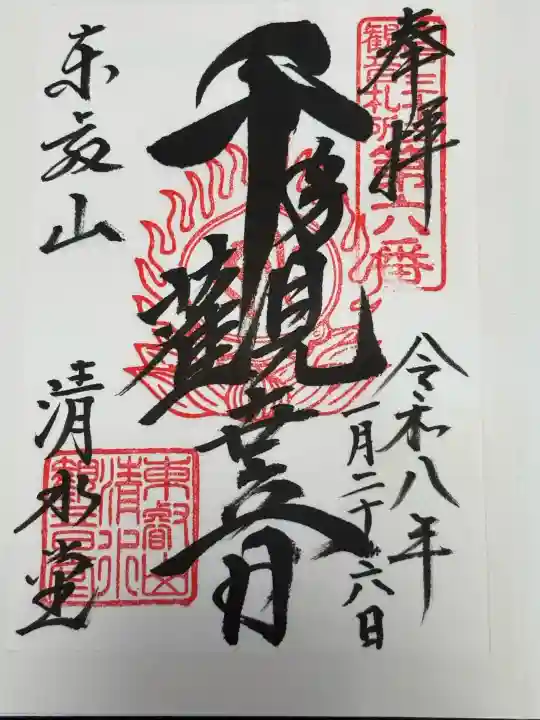 奉拝
観音札所第六番
令和八年
一月二十六日
千手観世音
東叡山
清水堂
東叡山
清水
観音堂